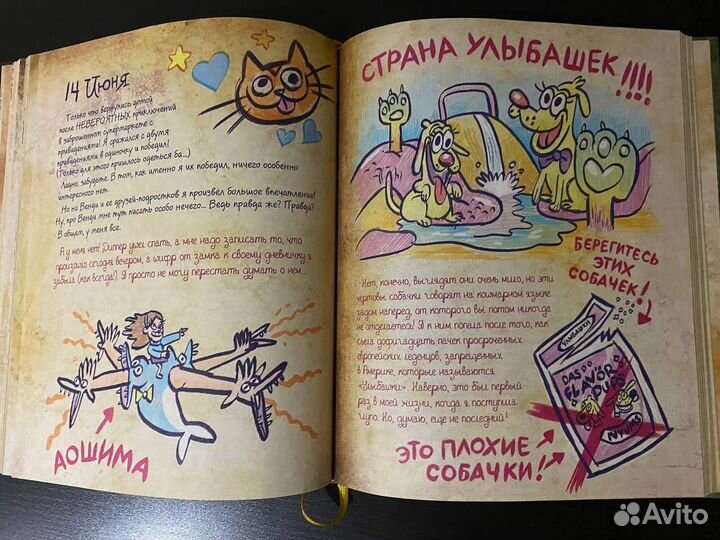 14 Июня
Только что вернулись домой
после НЕВЕРОЯТНЫХ приключений
в заброшенном супермаркете с
привидениями! Я сражался с двумя
привидениями в одиночку и победил!
(Только для этого пришлось одеться ба...)
Ладно, забудьте. В том, как именно я их победил, ничего особенно
интересного нет.
Но на Венди и ее друзей-подростков я произвел большое впечатление!
Ну, про Венди мне тут писать особо нечего... Ведь правда же? Правда?
В общем, у меня все.
А у меня нет! Диппер улег спать, а мне надо записать то, что
произошло сегодня вечером, а шифр от замка к своему дневничку я
забыла (как всегда!). Я просто не могу перестать думать о нем...
АОШИМА
СТРАНА УЛЫБАШЕК!!!!
БЕРЕГИТЕСЬ
ЭТИХ
СОБАЧЕК!
Нет, конечно, выглядят они очень мило, но эти
чертовы собачки говорят на кошмарном языке
задом наперед, от которого вы потом никогда
не отделаетесь! Я к ним попала после того, как
съела дофигадцать пачек просроченных
европейских леденцов, запрещенных
в Америке, которые называются
«Улыбашки». Наверно, это был первый
раз в моей жизни, когда я поступила
глупо. Но, думаю, еще не последний!
УЛЫБАШКИ
DAS
FLAVÖR
PUPS
ЭТО ПЛОХИЕ
СОБАЧКИ!
Avito